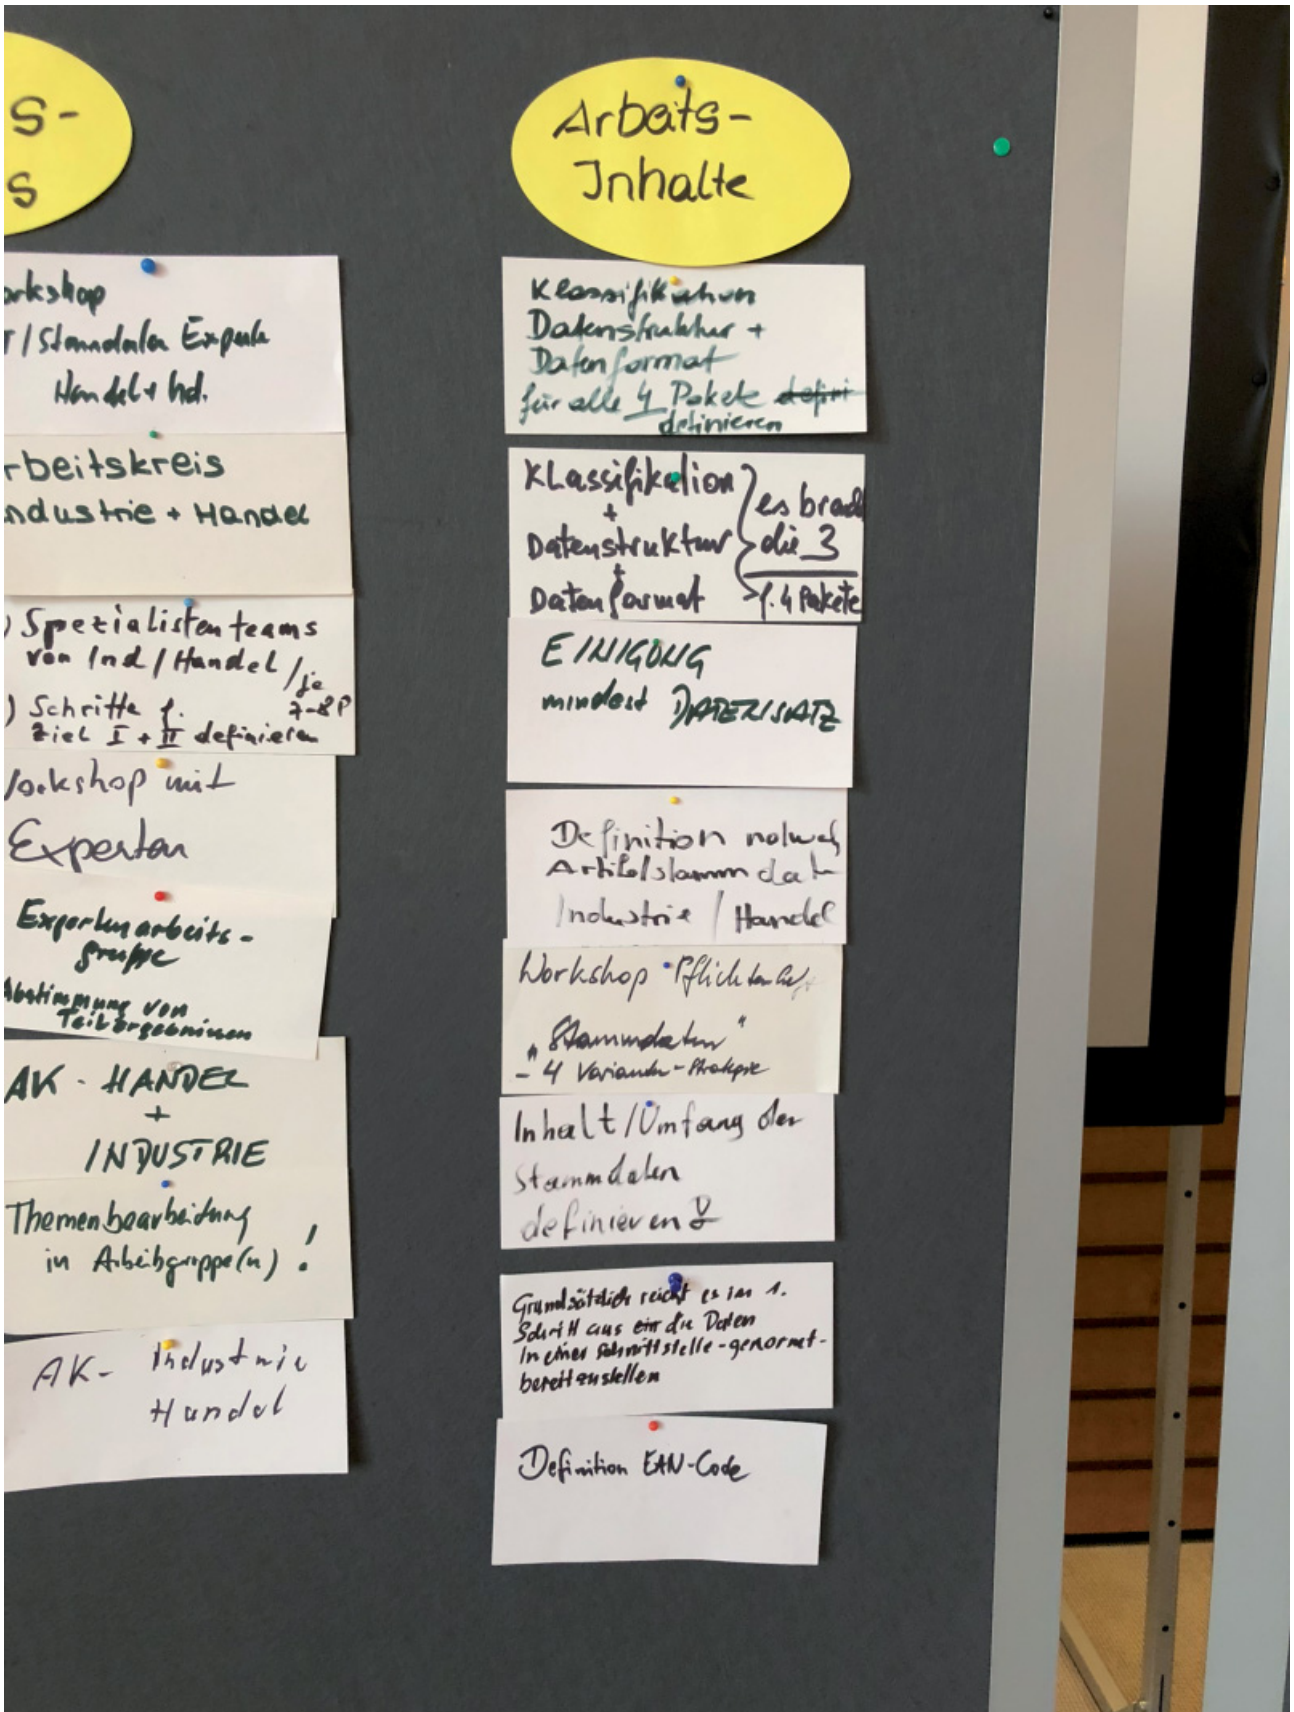 S-
S
orkshop
T/Stammdaten Experte
Handel + Ind.
rbeitskreis
ndustrie + Handel
) Spezialistenteams
von Ind/Handel/je
7-8P
) Schritte f.
Ziel I + II definieren
orkshop mit
Experten
Expertenarbeits-
gruppe
Abstimmung von
Teilergebnissen
AK - HANDEL
+
INDUSTRIE
Themenbearbeitung
in Arbeitsgruppe(n) !
AK- Industrie
Handel
Arbeits-
Inhalte
Klassifikation
Datenstruktur +
Datenformat
für alle 4 Pakete defini
definieren
Klassifikation
+
Datenstruktur
+
Datenformat
es brau
die 3
f. 4 Pakete
EINIGUNG
mindest DATENSATZ
Definition
Artikelstammdat
Industrie / Handel
Workshop Pflichtenheft
"Stammdaten"
- 4 Varianten-Strategie
Inhalt/Umfang der
Stammdaten
definieren!
Grundsätzlich reicht es im 1.
Schritt aus ein die Daten
in einer Schnittstelle-genormt-
bereitzustellen
Definition EAN-Code